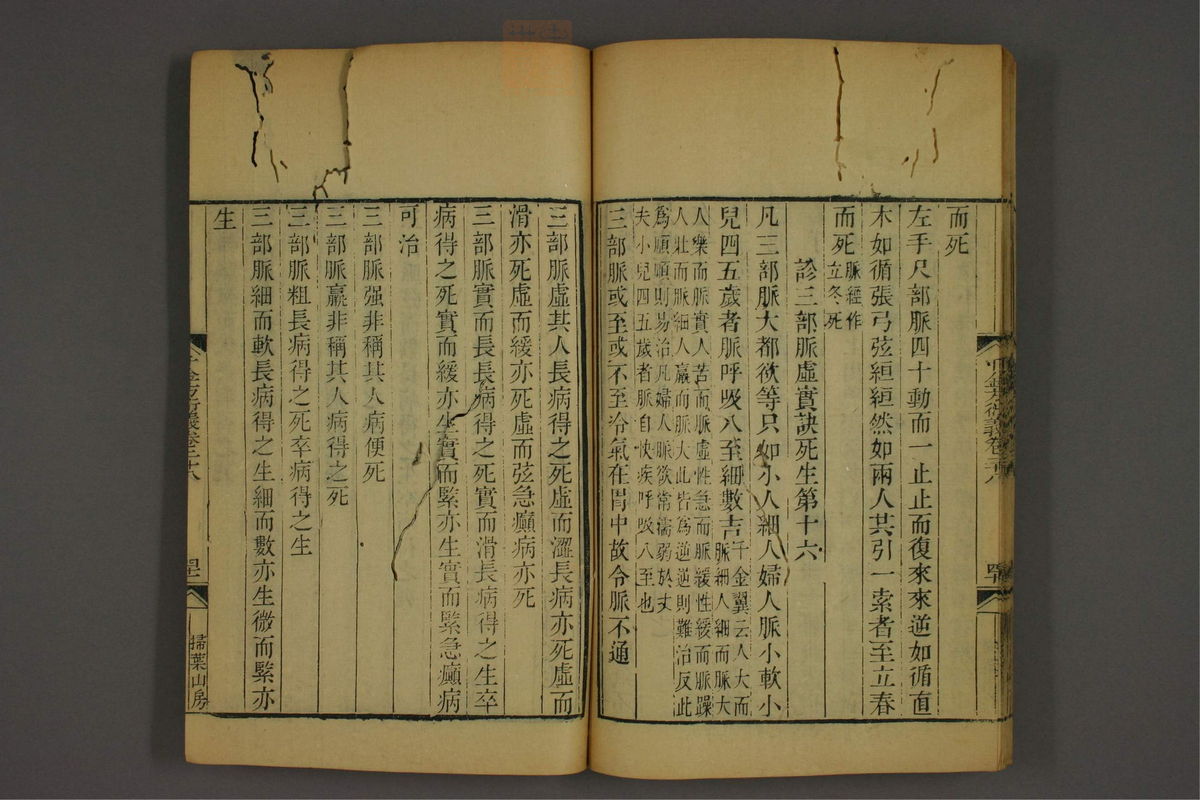 而死
左手尺部脈四十動而一止止而復來來逆如循直
木如循張弓弦絙絙然如兩人共引一索者至立春
而死脈經作立冬死
診三部脈虛實訣死生第十六
凡三部脈大都欲等只如小人細人婦人脈小軟小
兒四五歲者脈呼吸八至細數吉千金翼云人大而
脈細人細而脈大
人樂而脈實人苦而脈虛性急而脈緩性緩而脈躁
人壯而脈細人羸而脈大此皆為逆逆則難治反此
為順順則易治凡婦人脈欲常濡弱於丈
夫小兒四五歲者脈自快疾呼吸八至也
三部脈或至或不至冷氣在胃中故令脈不通
三部脈虛其人長病得之死虛而澀長病亦死虛而
滑亦死虛而緩亦死虛而弦急癲病亦死
三部脈實而長長病得之死實而滑長病得之生卒
病得之死實而緩亦生實而緊亦生實而緊急癲病
可治
三部脈强非稱其人病便死
三部脈羸非稱其人病得之死
三部脈粗長病得之死卒病得之生
三部脈細而軟長病得之生細而數亦生微而緊亦
生
千金方衍義卷二十八
掃葉山房